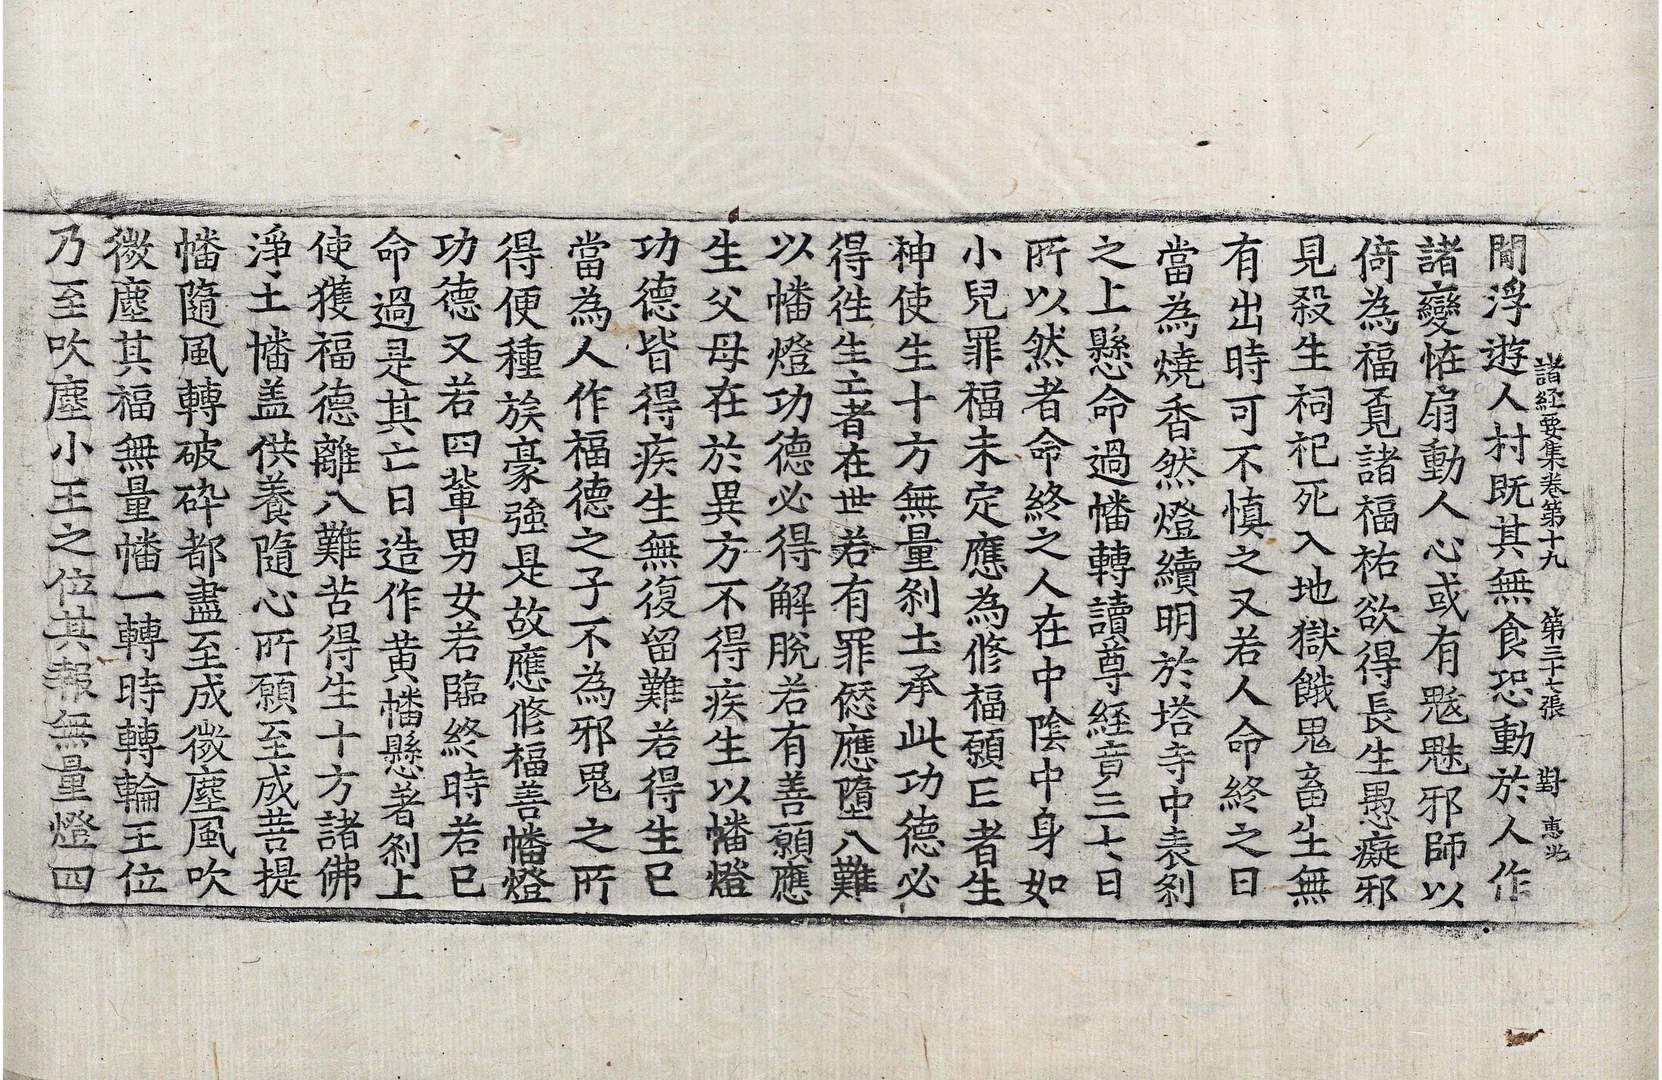 諸経要集卷第十九　第三十七張　對　惠光
閒浮遊人村既其無食恐動於人作
諸變恠扇動人心或有魃魅邪師以
倚為福覔諸福祐欲得長生愚癡邪
見殺生祠祀死入地獄餓鬼畜生無
有出時可不慎之又若人命終之日
當為燒香然燈續明於塔寺中表剎
之上懸命過幡轉讀尊経竟三七日
所以然者命終之人在中陰中身如
小兒罪福未定應為修福願亡者生
神使生十方無量剎土承此功德必
得徃生亡者在世若有罪愆應墮八難
以幡燈功德必得解脫若有善願應
生父母在於異方不得疾生以幡燈
功德皆得疾生無復留難若得生已
當為人作福德之子不為邪鬼之所
得便種族豪強是故應修福善幡燈
功德又若四軰男女若臨終時若已
命過是其亡日造作黄幡懸著剎上
使獲福德離八難苦得生十方諸佛
淨土幡盖供養隨心所願至成菩提
幡隨風轉破碎都盡至成微塵風吹
微塵其福無量幡一轉時轉輪王位
乃至吹塵小王之位其報無量燈四